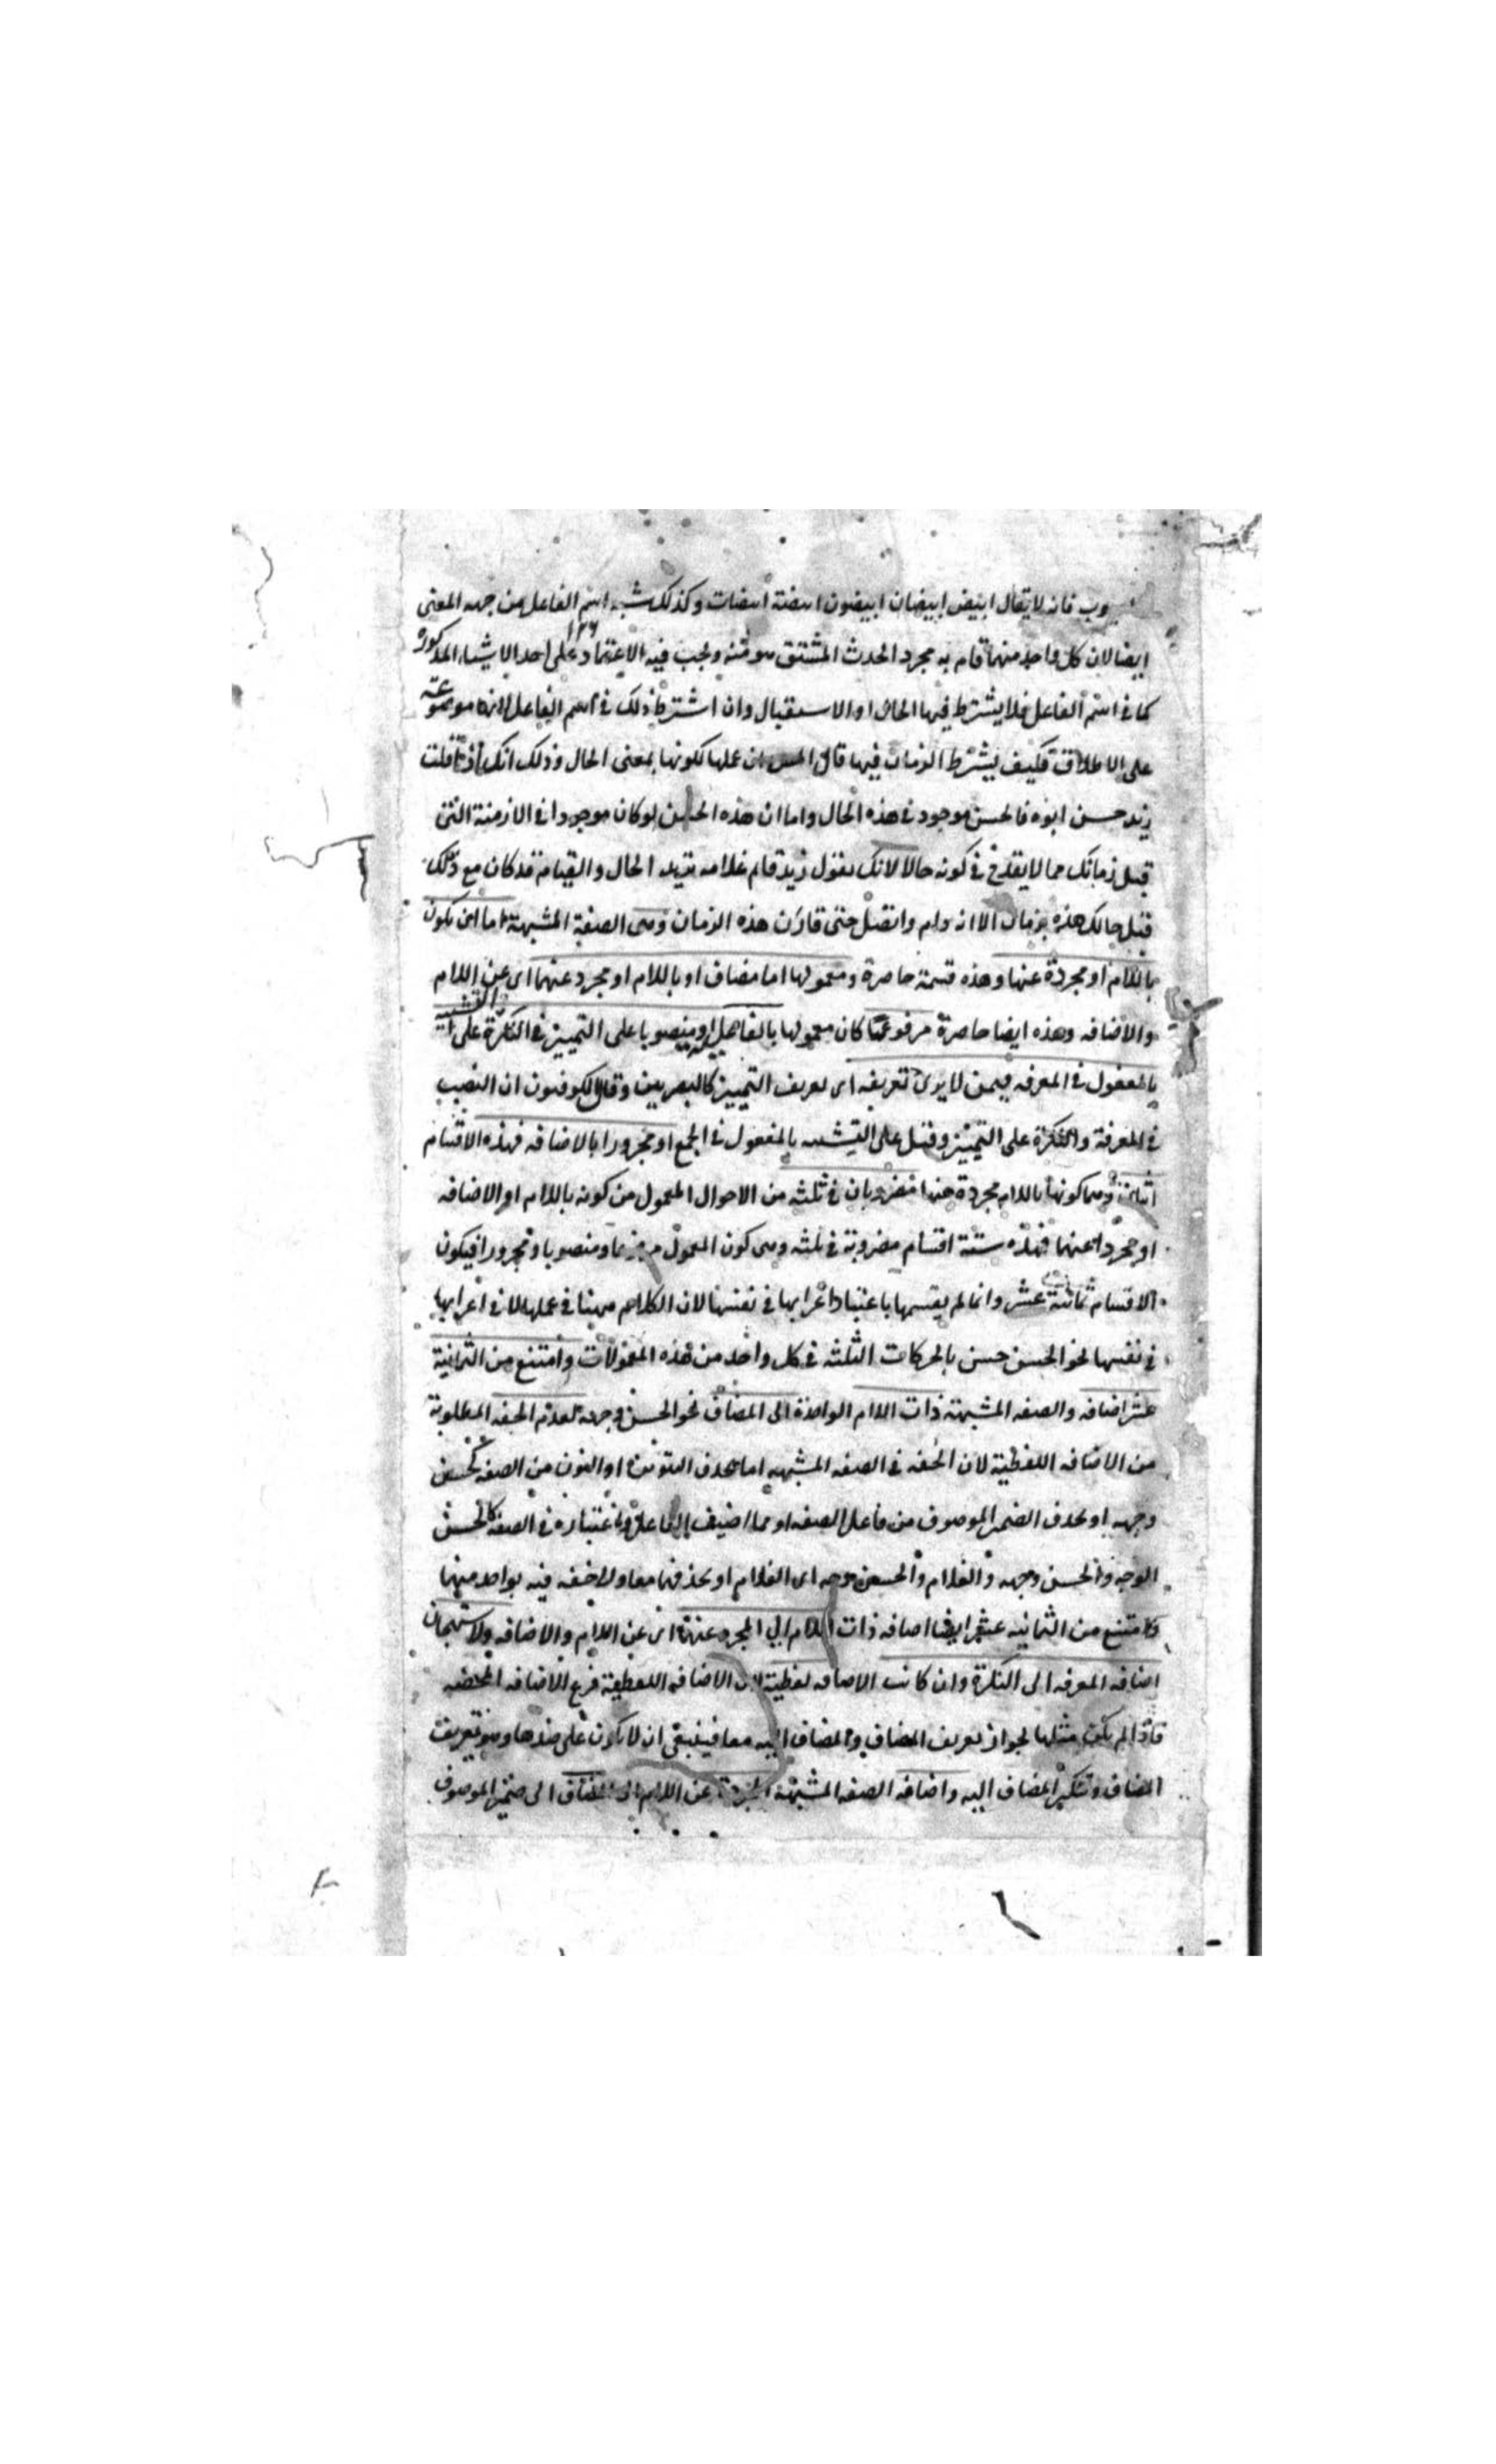 فانه لا يقال ابيض ابيضان ابيضون ابيضة ابيضات وكذلك شبه اسم الفاعل من جهه المعنى
ايضا لان كل واحد منهما قام به مجرد الحدث المشتق هو منه ويجب فيه الاعتماد على احد الاشياء المذكوره
١٣٦
كما فى اسم الفاعل فلا يشترط فيها الحال او الاستقبال وان اشترط ذلك فى اسم الفاعل لانها موضوعة
على الاطلاق فكيف يشترط الزمان فيها قال ان عملها لكونها بمعنى الحال وذلك انك اذا قلت
زيد حسن ابوه فالحسن موجود فى هذه الحال واما ان هذه الحسن لو كان موجودا فى الازمنة التى
قبل زمانك مما لا يقدح فى كونه حالا لانك تقول زيد قام غلامه تريد الحال والقيام قد كان مع ذلك
قبل حالك هذه بزمان الا انه دام واتصل حتى قارن هذه الزمان وهى الصفة المشبهة اما ان يكون
باللام او مجردة عنها وهذه قسمة حاصرة ومعمولها اما مضاف او باللام او مجرد عنهما اى عن اللام
والاضافه وهذه ايضا حاصرة مرفوعا كان معمولها بالفاعليه او منصوبا على التمييز فى النكرة على التشبيه
بالمفعول فى المعرفه فيمن لا يرى تعريفه اى تعريف التمييز كالبصريين وقال الكوفيون ان النصب
فى المعرفة والنكرة على التمييز وقيل على التشبيه بالمفعول فى الجمع او مجرورا بالاضافه فهذه الاقسام
اثنان وهما كونها باللام مجردة عنها مضروبان فى ثلثه من الاحوال المعمول من كونه باللام او الاضافه
او مجردا عنهما فهذه ستة اقسام مضروبة فى ثلثه وهى كون المعمول مرفوعا ومنصوبا ومجرورا فيكون
الاقسام ثمانية عشر وانما لم يقسمها باعتبار اعرابها فى نفسها لان الكلام ههنا فى عملها لا فى اعرابها
فى نفسها نحو الحسن حسن بالحركات الثلثه فى كل واحد من هذه المعمولات وامتنع من الثمانية
عشر اضافه والصفه المشبهة ذات اللام الواحدة الى المضاف نحو الحسن وجهه لعدم الخفه المطلوبة
من الاضافه اللفظية لان الخفه فى الصفه المشبهه اما بحذف التنوين او النون من الصفه كحسن
وجهه او بحذف الضمير الموصوف من فاعل الصفه او مما اضيف الفاعل واعتباره فى الصفة كالحسن
الوجه والحسن وجهه والغلام والحسن وجه اى الغلام او بحذفهما معا ولا خفه فيه بواحد منهما
وامتنع من الثمانيه عشر ايضا اضافه ذات اللام الى المجرد عنها اى عن اللام والاضافه ولاستهجان
اضافه المعرفه الى النكرة وان كانت الاضافه لفظية لان الاضافه اللفظية فرع الاضافه المحضه
فاذا لم يكن مثلها لجواز تعريف المضاف والمضاف اليه معا فينبغى ان لا يكون على ضدها وهو تعريف
المضاف وتنكير المضاف اليه واضافه الصفه المشبهة المجردة عن اللام الى المضاف الى ضمير الموصوف